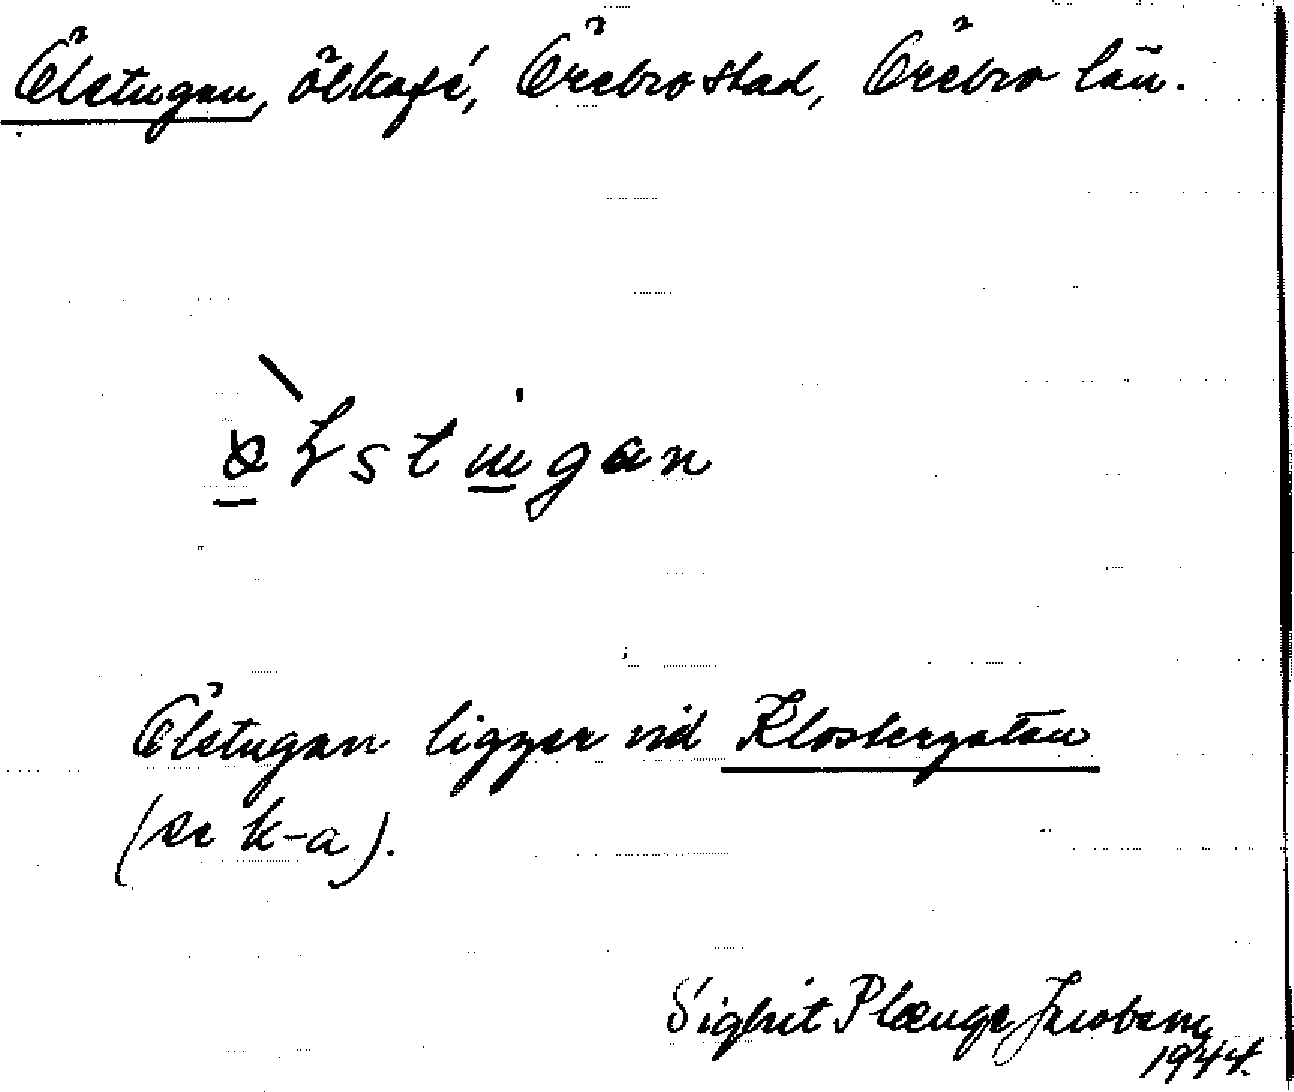 Ölstugan, ölkafé, Örebro stad, Örebro län.
Ölstugan ligger vid Klostergatan
(se k-a).
Sigbrit Plænge Jacobson
1944.